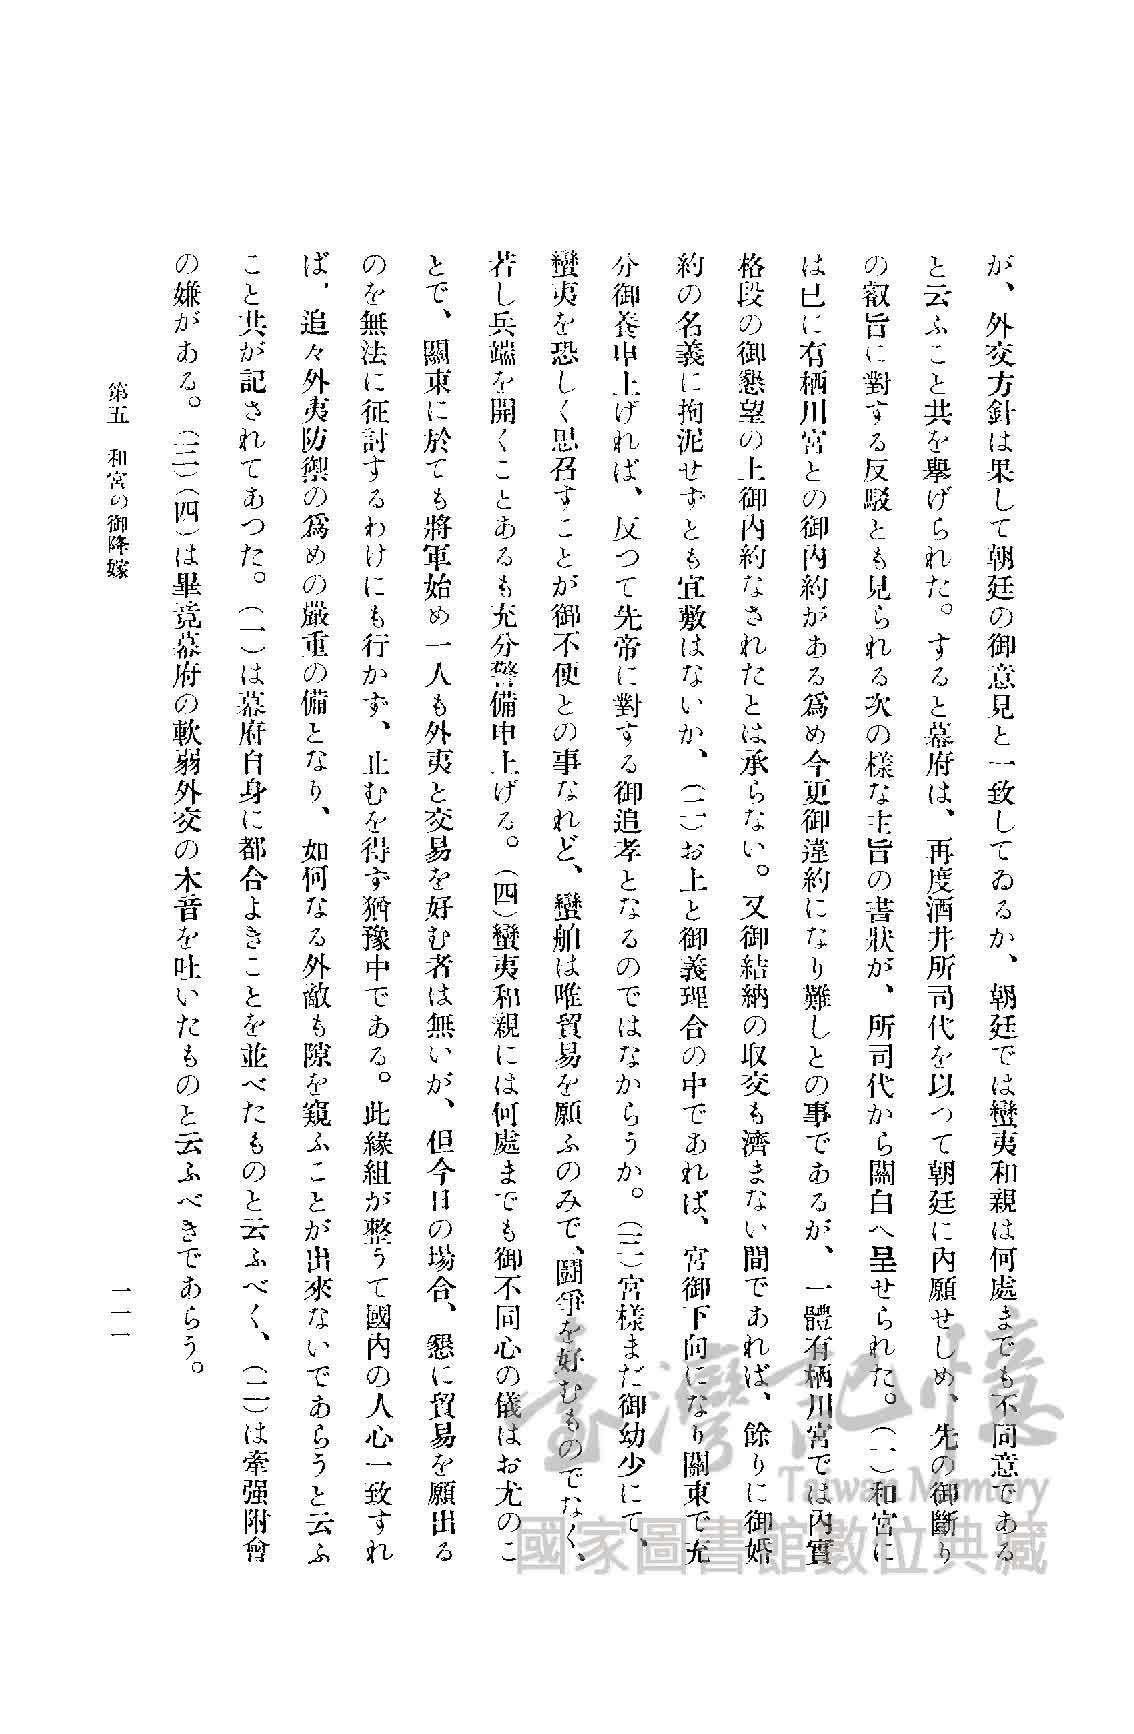 が、外交方針は果して朝廷の御意見と一致してゐるか、朝廷では蠻夷和親は何處までも不同意である
と云ふこと共を擧げられた。すると幕府は、再度酒井所司代を以つて朝廷に內願せしめ、先の御斷り
の叡旨に對する反駁とも見られる次の樣な主旨の書狀が、所司代から關白へ呈せられた。(一)和宮に
は已に有栖川宮との御內約がある爲め今更御違約になり難しとの事であるが、一體有栖川宮では內實
格段の御懇望の上御內約なされたとは承らない。又御結納の取交も濟まない間であれば、餘りに御婚
約の名義に拘泥せずとも宜敷はないか、(二)お上と御義理合の中であれば、宮御下向になり關東で充
分御養申上げれば、反つて先帝に對する御追孝となるのではなからうか。(三)宮樣まだ御幼少にて、
蠻夷を恐しく思召すことが御不便との事なれど、蠻舶は唯貿易を願ふのみで、鬪爭を好むものでなく、
若し兵端を開くことあるも充分警備申上げる。(四)蠻夷和親には何處までも御不同心の儀はお尤のこ
とで、關東に於ても將軍始め一人も外夷と交易を好む者は無いが、但今日の場合、懇に貿易を願出る
のを無法に征討するわけにも行かず、止むを得ず猶豫中である。此緣組が整うて國內の人心一致すれ
ば、追々外夷防禦の爲めの嚴重の備となり、如何なる外敵も隙を窺ふことが出來ないであらうと云ふ
こと共が記されてあつた。(一)は幕府自身に都合よきことを並べたものと云ふべく、(二)は牽强附會
の嫌がある。(三)(四)は畢竟幕府の軟弱外交の本音を吐いたものと云ふべきであらう。
第五 和宮の御降嫁
二一一
臺灣記憶
Taiwan Memory
國家圖書館數位典藏